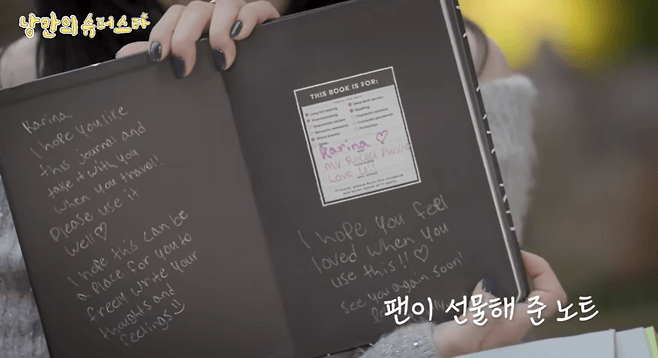 낭만의 슈퍼스타
Karina,
I hope you like
this journal and
take it with you
when you travel!
Please use it
well♡
I hope this can be
a place for you to
freely write your
thoughts and
feelings
THIS BOOK IS FOR:
Karina ♡
Love U!!
I hope you feel
loved when you
use this!!♡
See you again soon!
팬이 선물해 준 노트